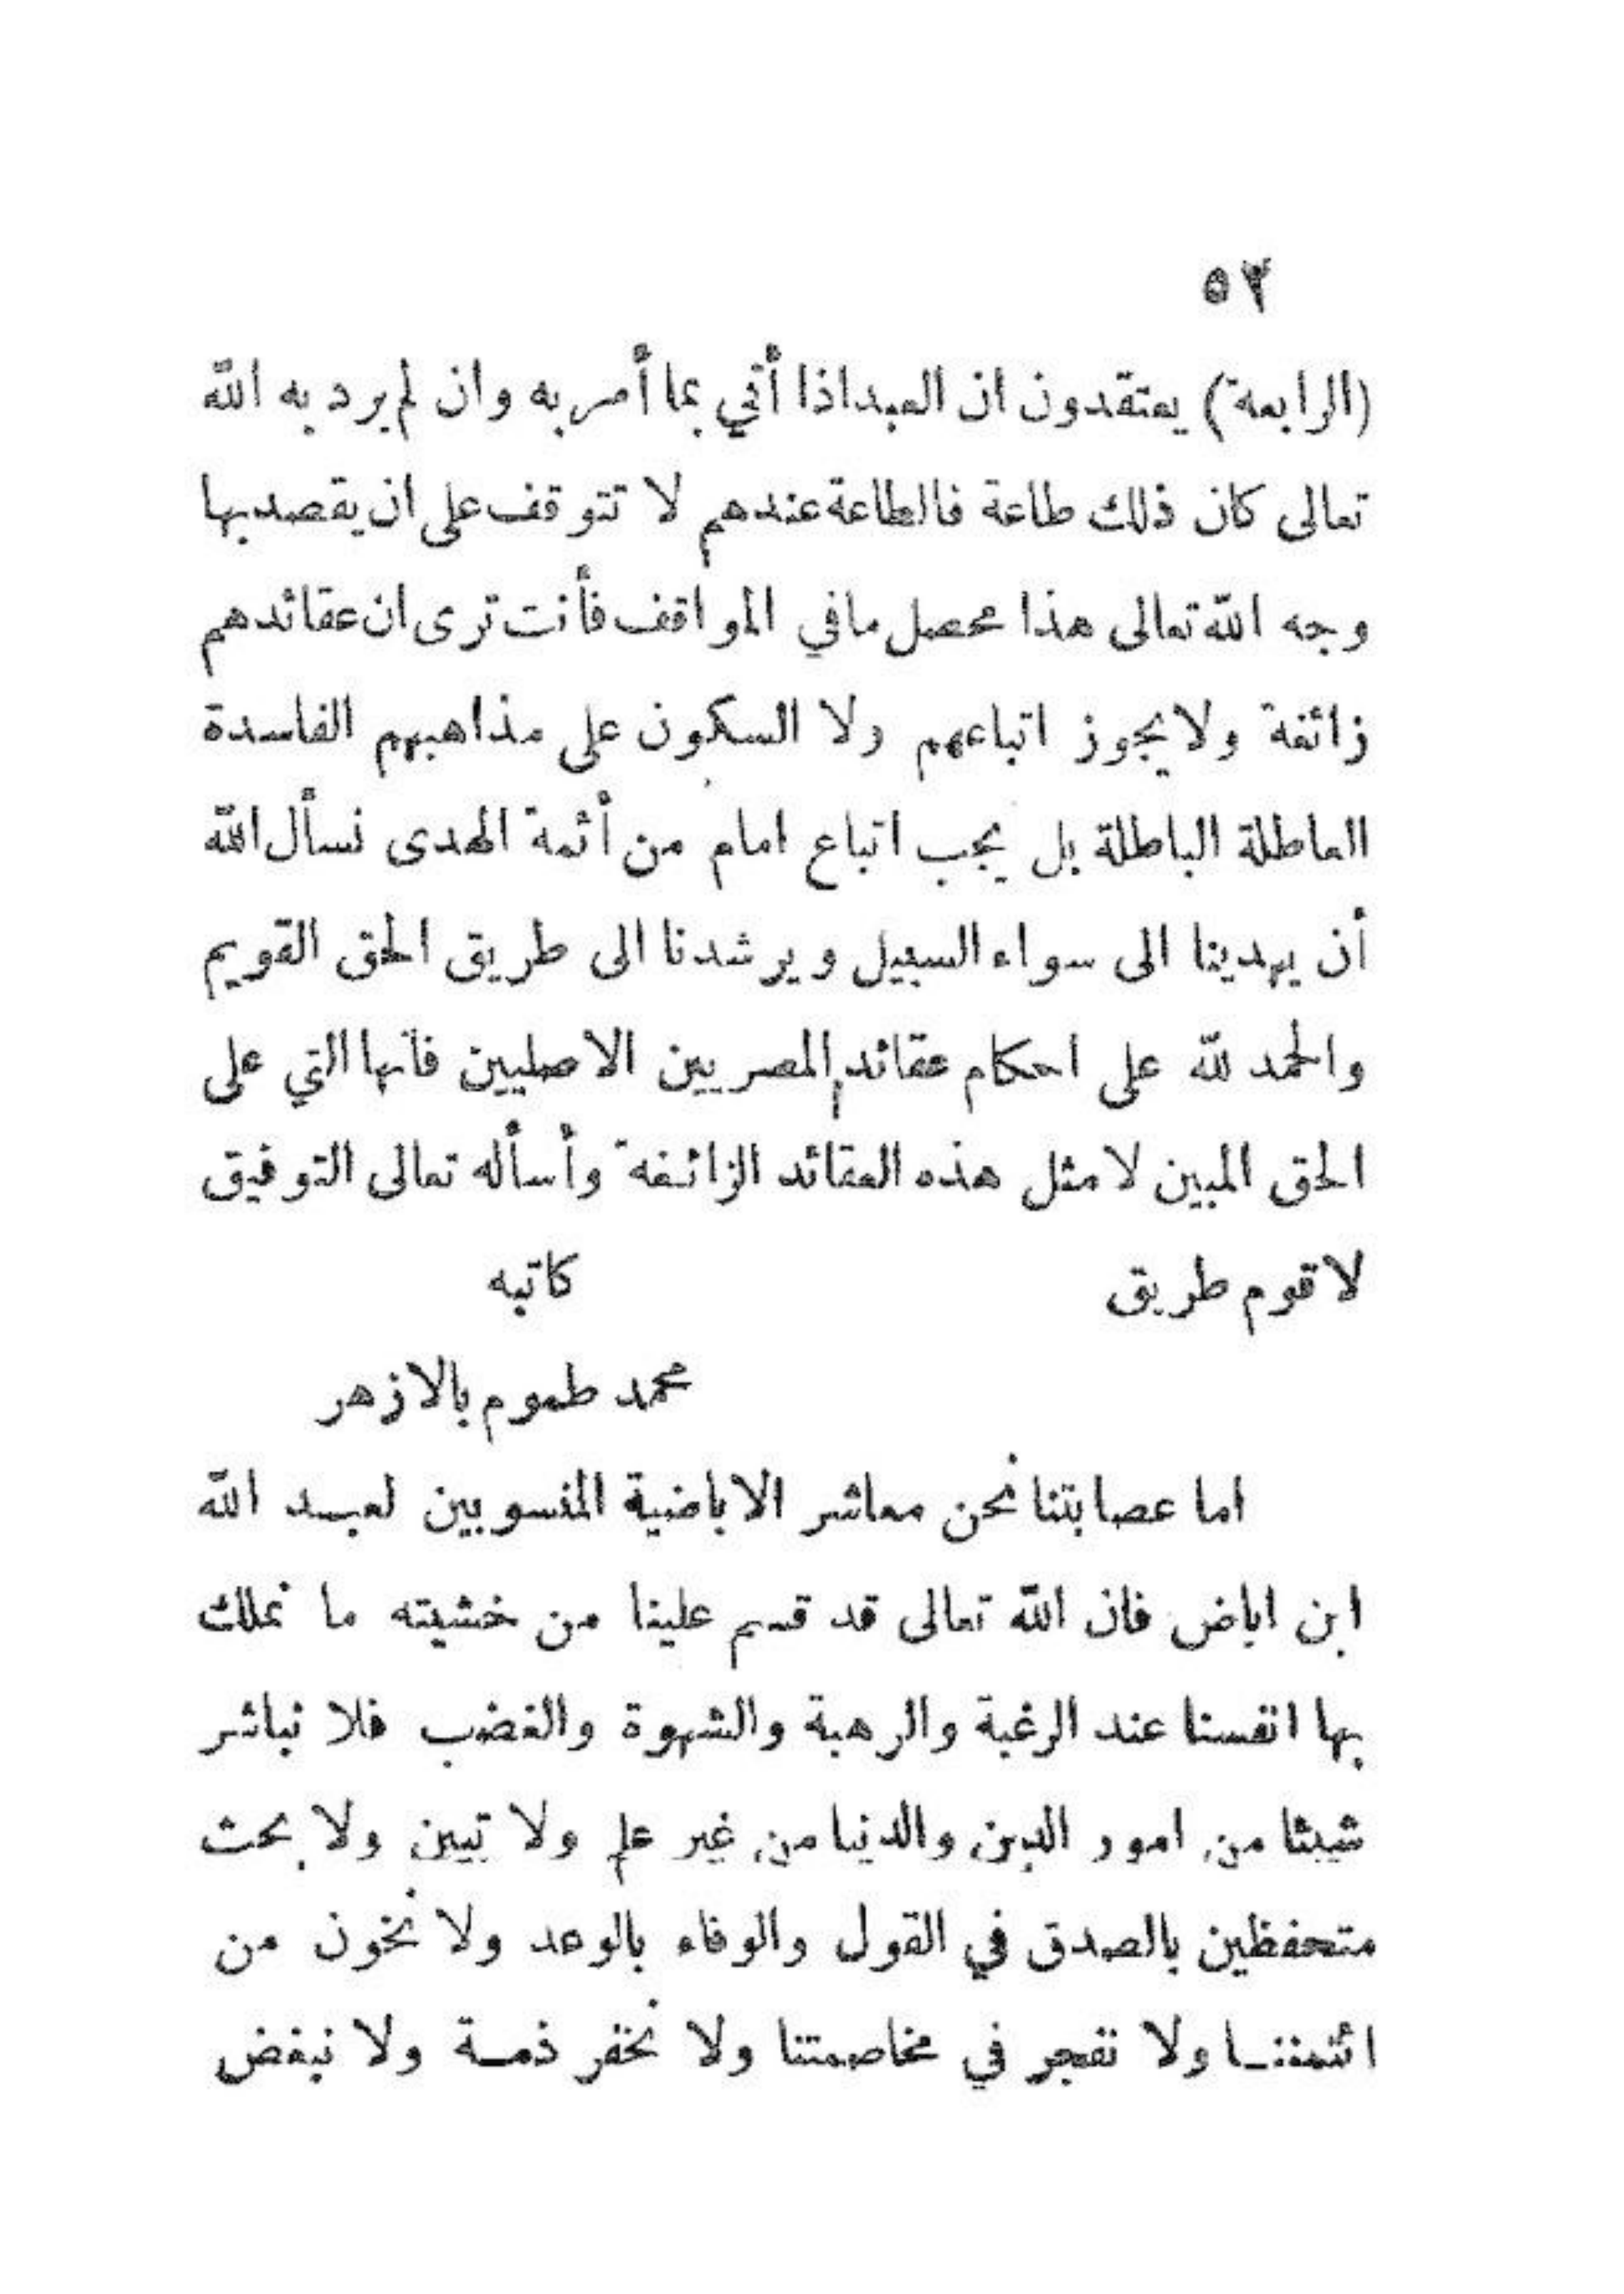 ٥٢
(الرابعة) يعتقدون ان العبد اذا أتي بما أمر به وان لم يرد به الله
تعالى كان ذلك طاعة فالطاعة عندهم لا تتوقف على ان يقصد بها
وجه الله تعالى هذا محصل مافي المواقف فأنت ترى ان عقائدهم
زائغة ولا يجوز اتباعهم ولا السكون على مذاهبهم الفاسدة
العاطلة الباطلة بل يجب اتباع امام من أئمة الهدى نسأل الله
أن يهدينا الى سواء السبيل ويرشدنا الى طريق الحق القويم
والحمد لله على احكام عقائد المصريين الاصليين فانها التي على
الحق المبين لا مثل هذه العقائد الزائغة وأسأله تعالى التوفيق
لاقوم طريق كاتبه
محمد طموم بالازهر
اما عصابتنا نحن معاشر الاباضية المنسوبين لعبد الله
ابن اباض فان الله تعالى قد قسم علينا من خشيته ما نملك
بها انفسنا عند الرغبة والرهبة والشهوة والغضب فلا نباشر
شيئا من امور الدين والدنيا من غير علم ولا تبين ولا بحث
متحفظين بالصدق في القول والوفاء بالوعد ولا نخون من
ائتمننا ولا نفجر في مخاصمتنا ولا نخفر ذمة ولا نبغض